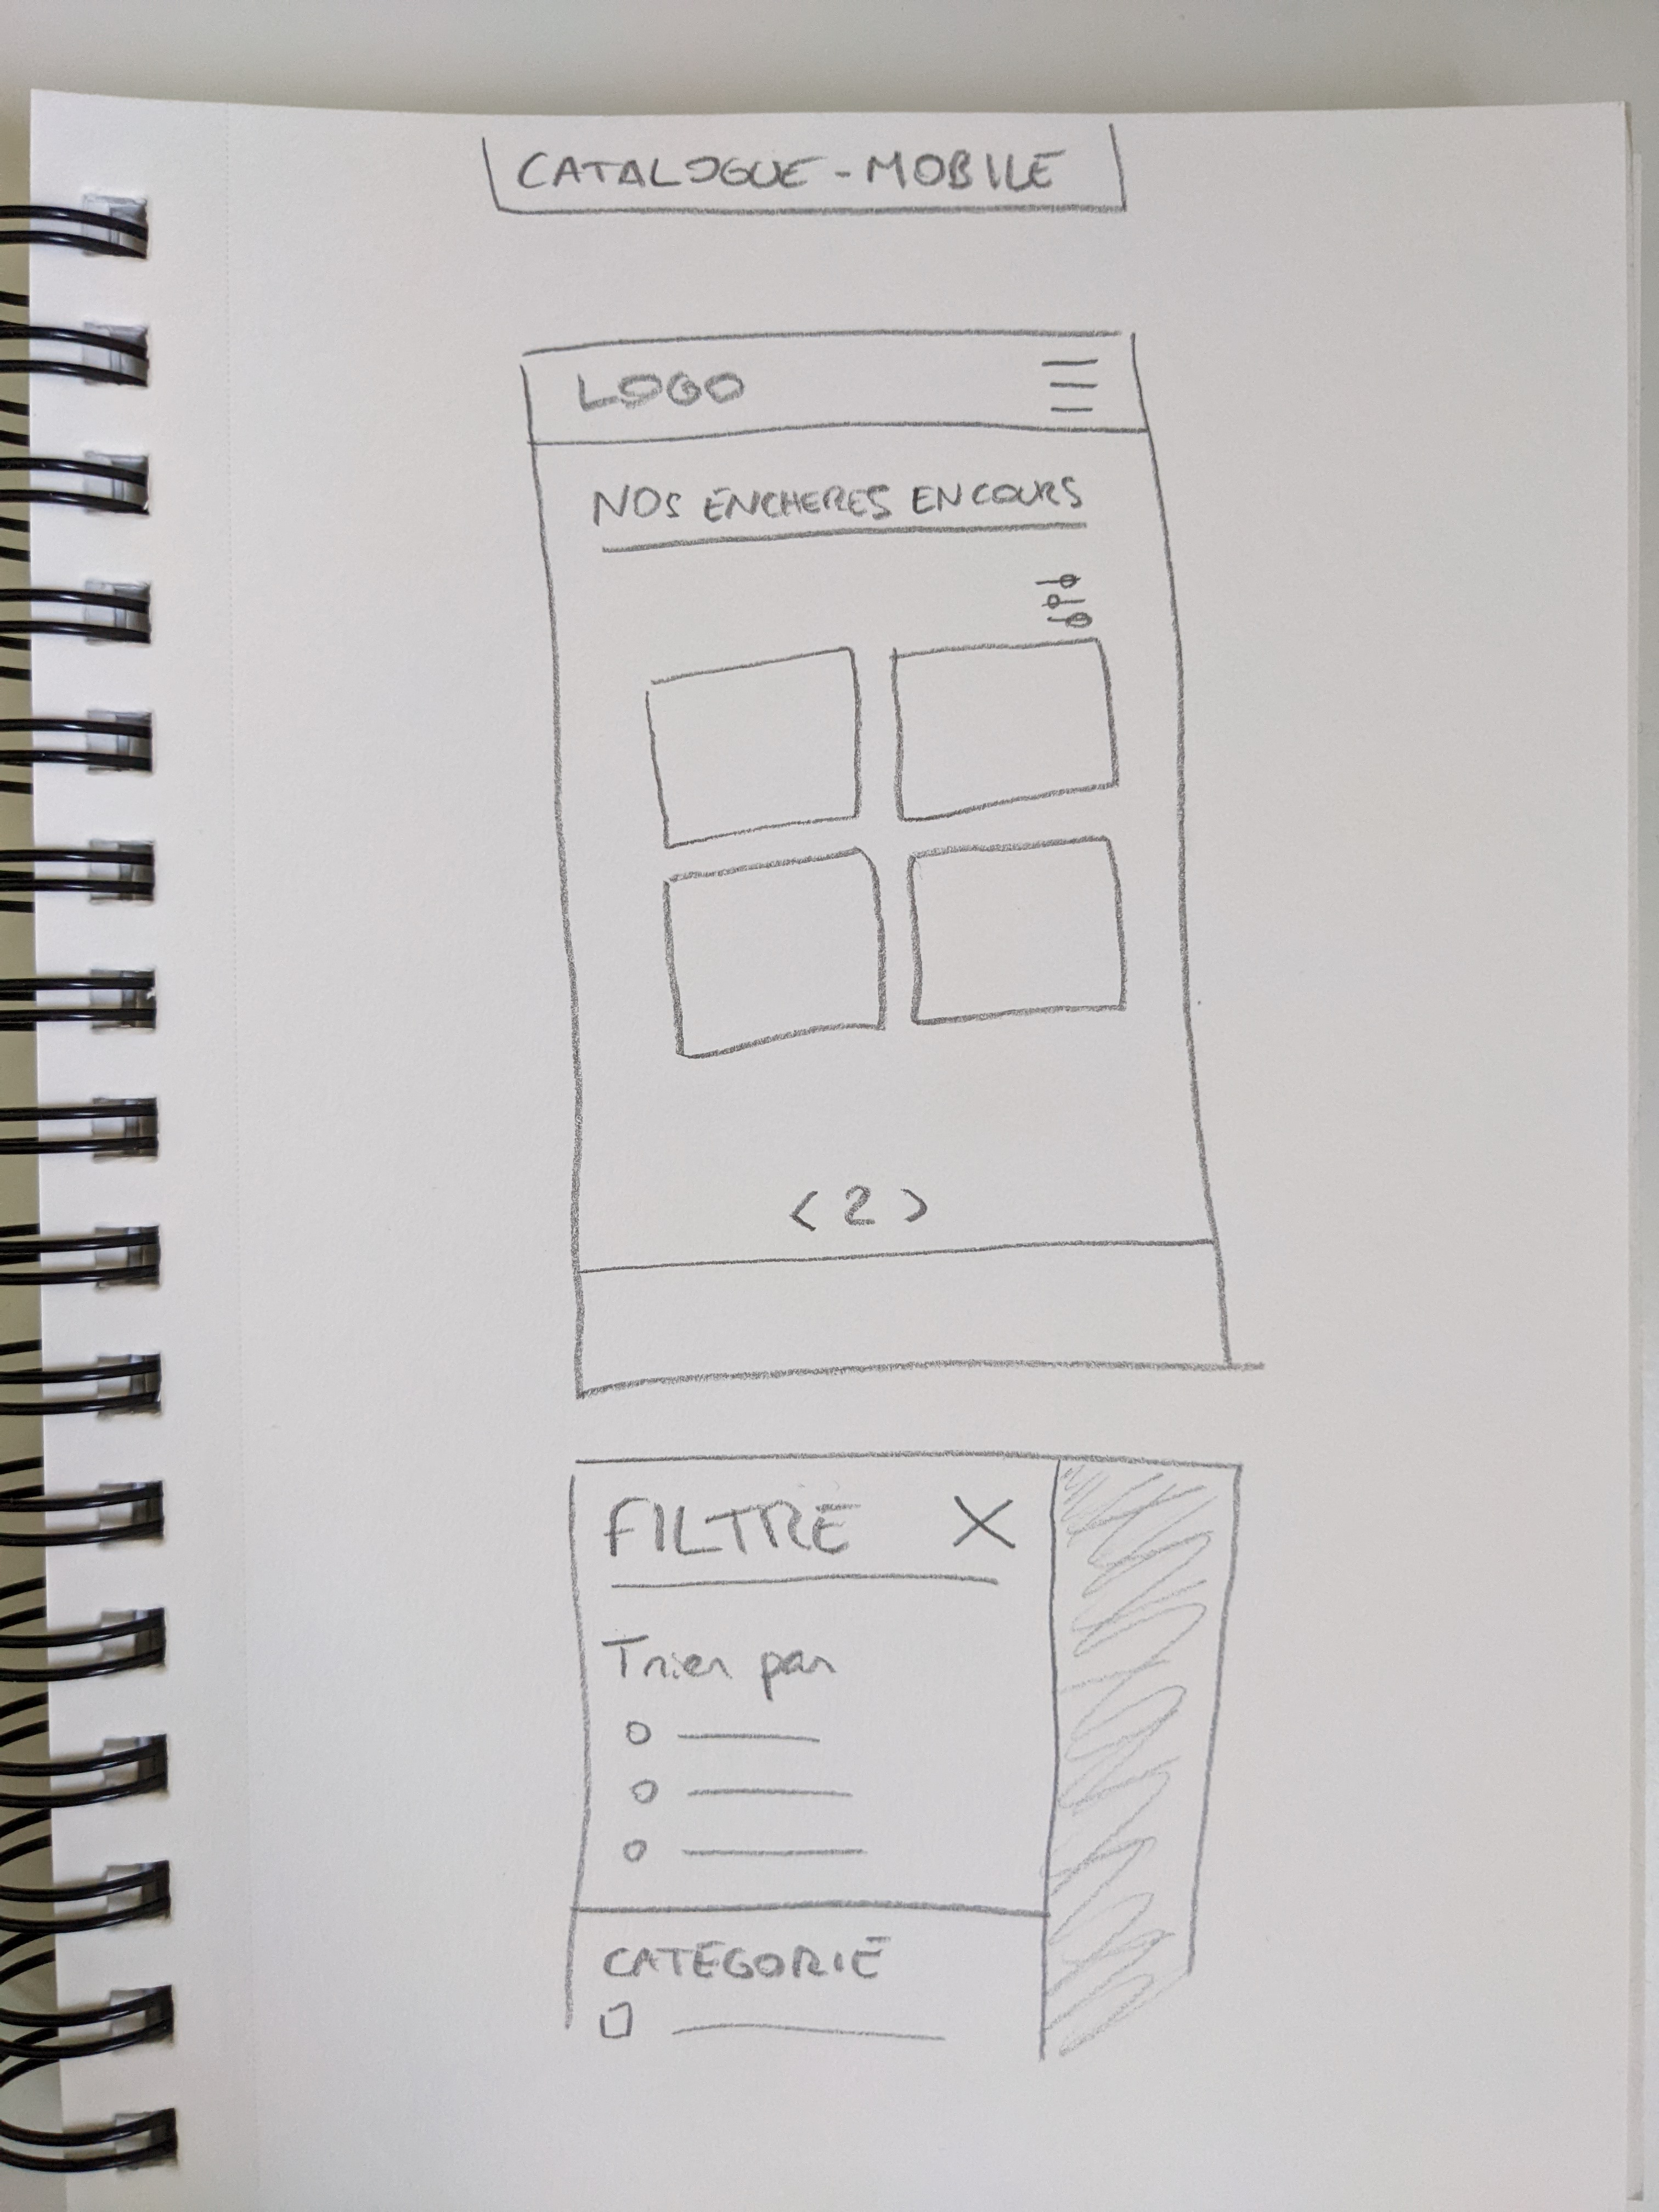 CATALOGUE - MOBILE
LOGO
NOS ENCHERES EN COURS
< 2 >
FILTRE X
Trier par
CATEGORIE